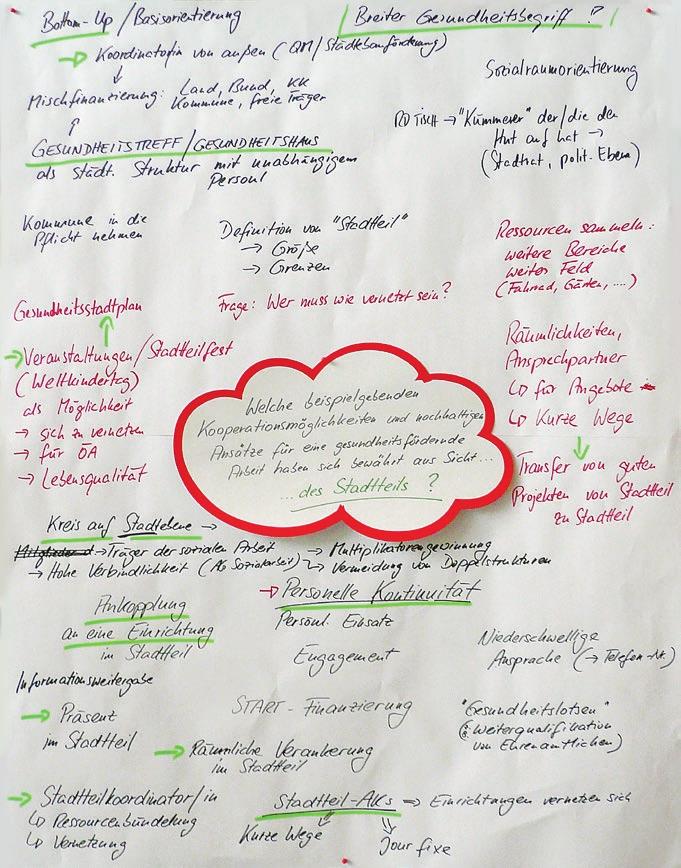 Bottom-Up / Basisorientierung
Breiter Gesundheitsbegriff ?
→ Koordinator/in von außen (QM/Städtebauförderung)
Sozialraumorientierung
Mischfinanzierung: Land, Bund, KK
Kommune, freie Träger
RD TISCH → "Kümmerer" der/die den
Hut auf hat →
(Stadtrat, polit. Ebene)
GESUNDHEITSTREFF/GESUNDHEITSHAUS
als städt. Struktur mit unabhängigem
Personal
Kommune in die
Pflicht nehmen
Definition von "Stadtteil"
→ Größe
→ Grenzen
Ressourcen sammeln:
weitere Bereiche
weites Feld
(Fahrrad, Gärten, ....)
Gesundheitsstadtplan
Frage: Wer muss wie vernetzt sein?
→ Veranstaltungen/Stadtteilfest
(Weltkindertag)
als Möglichkeit
→ sich zu vernetzen
→ für ÖA
→ Lebensqualität
Räumlichkeiten,
Ansprechpartner
↳ für Angebote
↳ Kurze Wege
Transfer von guten
Projekten von Stadtteil
zu Stadtteil
Welche beispielgebenden
Kooperationsmöglichkeiten und nachhaltigen
Ansätze für eine gesundheitsfördernde
Arbeit haben sich bewährt aus Sicht...
...des Stadtteils ?
Kreis auf Stadtebene →
→ Träger der sozialen Arbeit → Multiplikatorengewinnung
→ Hohe Verbindlichkeit (AG Sozialarbeit) ↳ Vermeidung von Doppelstrukturen
→ Personelle Kontinuität
Persönl. Einsatz
Engagement
Ankopplung
an eine Einrichtung
im Stadtteil
Niederschwellige
Ansprache (→ Telefon-Nr.)
Informationsweitergabe
→ Präsenz
im Stadtteil
START-Finanzierung
→ Räumliche Verankerung
im Stadtteil
"Gesundheitslotsen"
(z.B. Weiterqualifikation
von Ehrenamtlichen)
→ Stadtteilkoordinator/in
↳ Ressourcenbündelung
↳ Vernetzung
Stadtteil-AKs ⇒ Einrichtungen vernetzen sich
Kurze Wege
Jour fixe